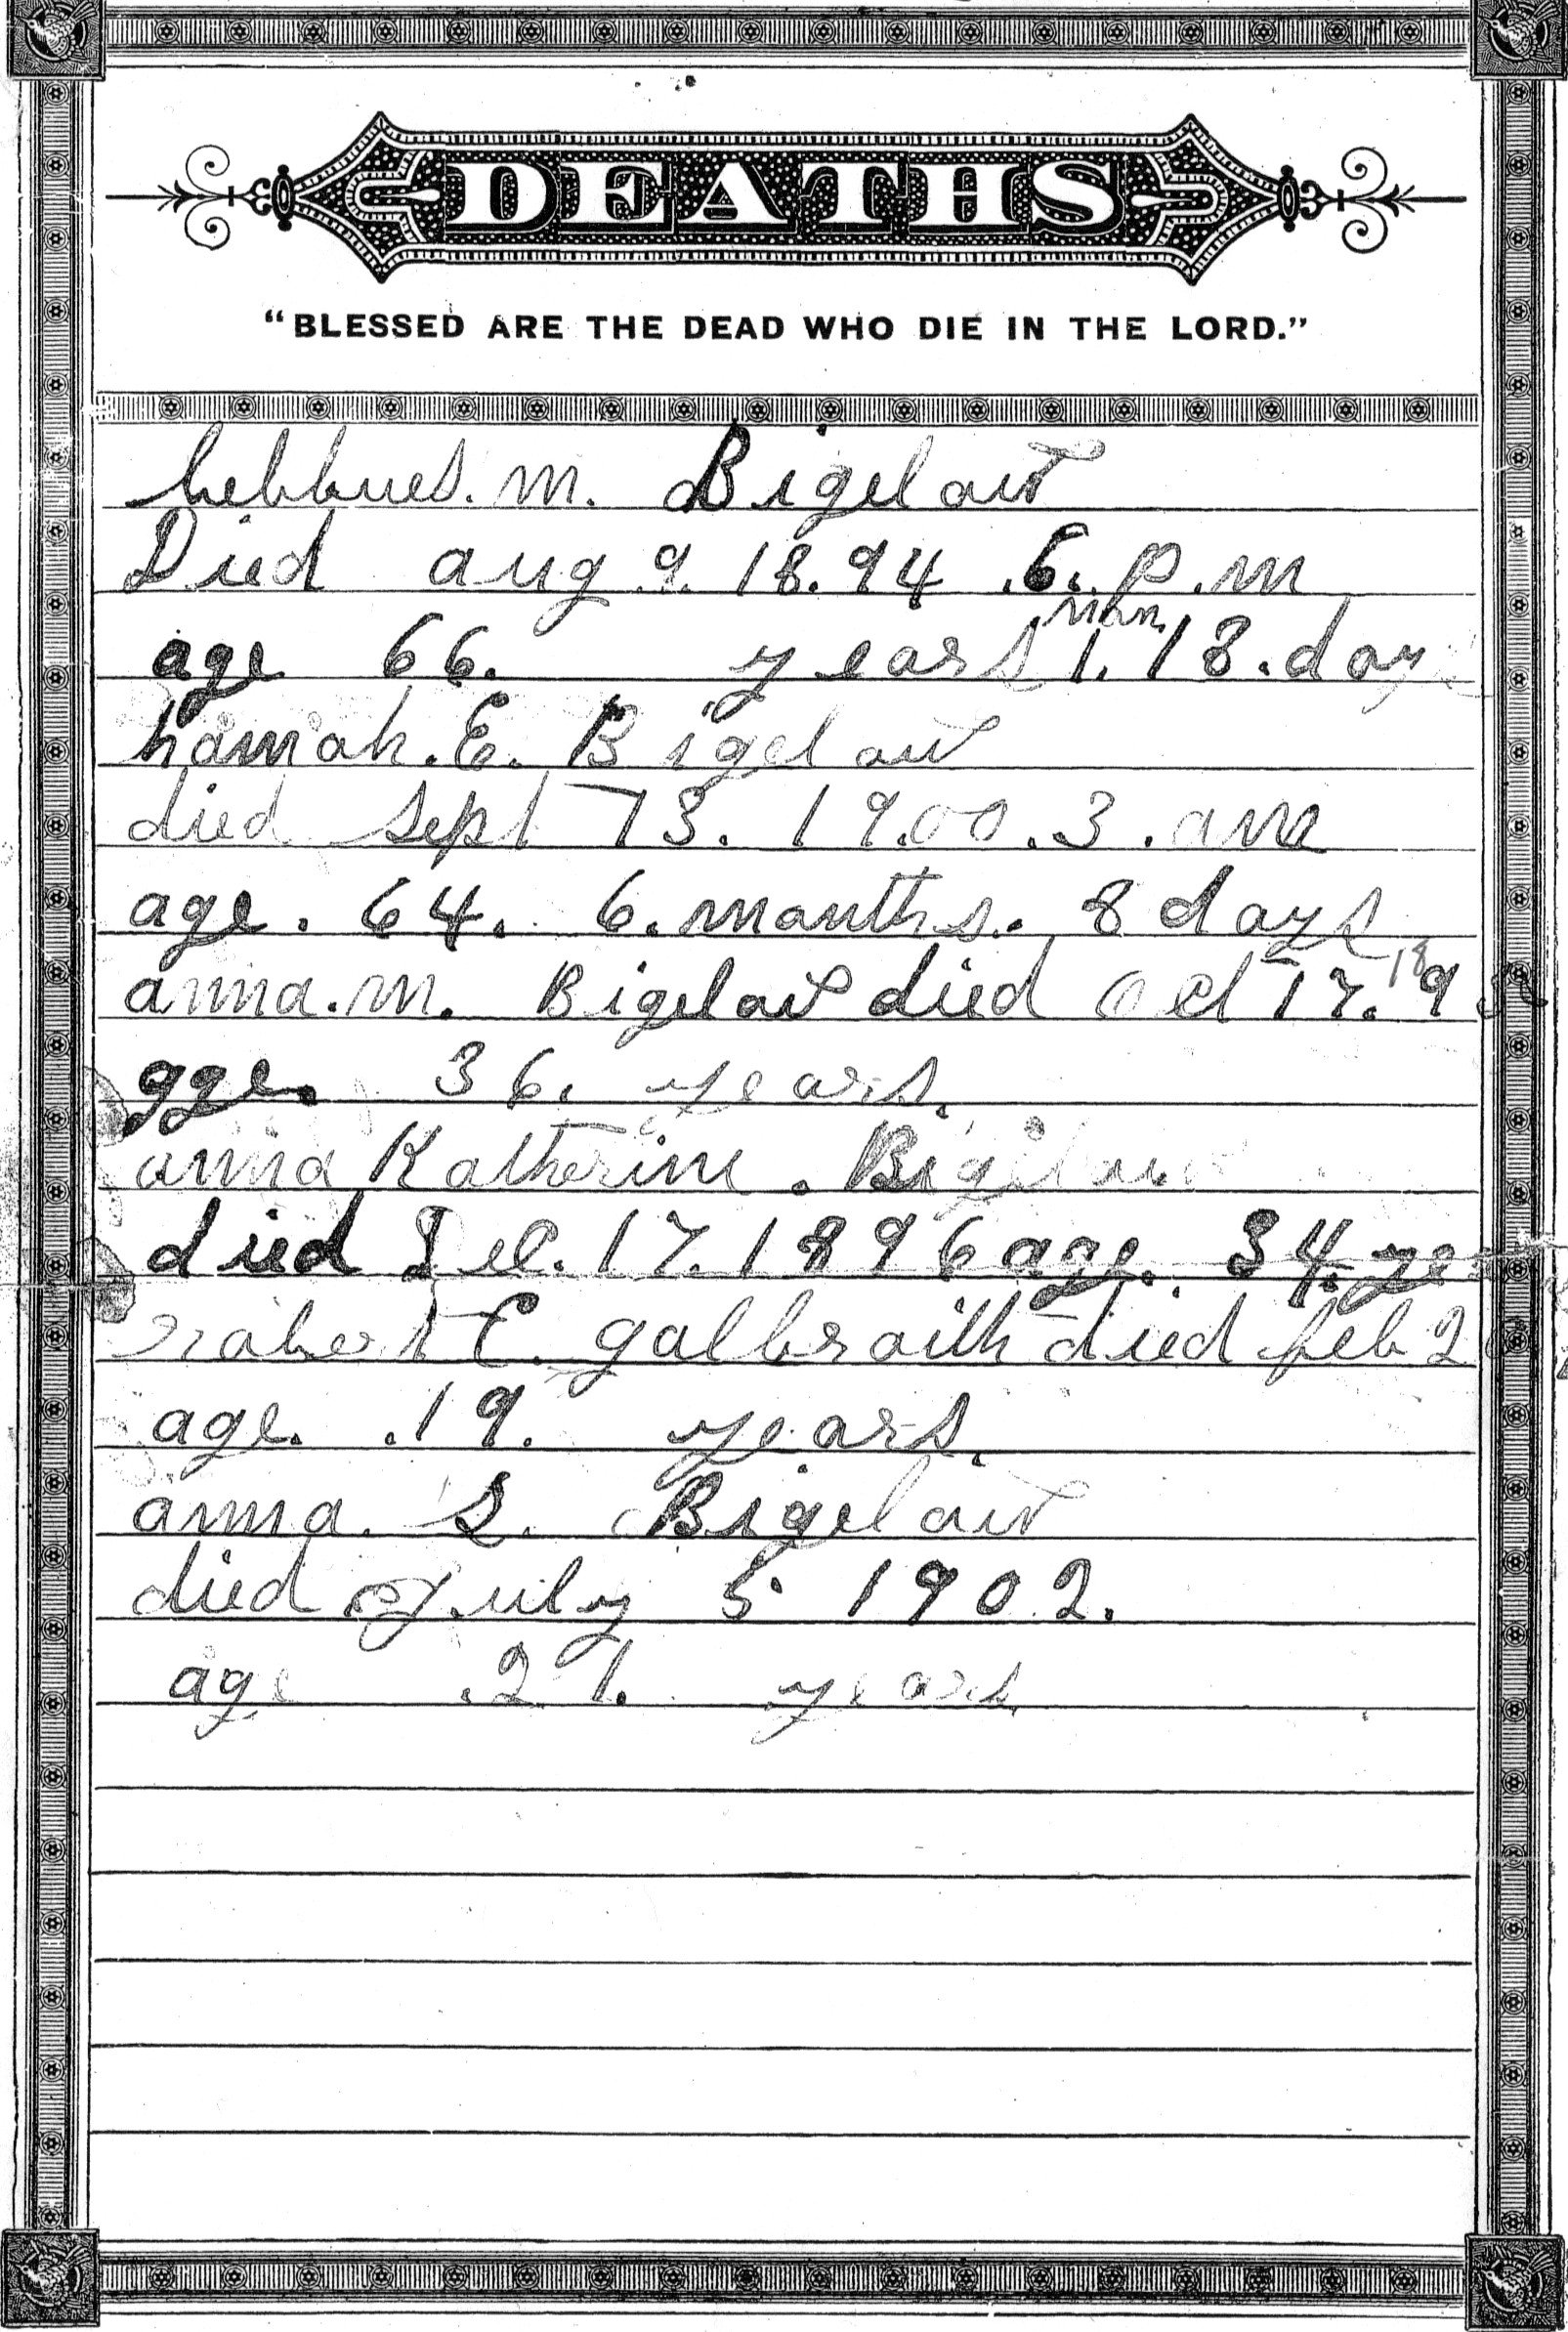 DEATHS
"BLESSED ARE THE DEAD WHO DIE IN THE LORD."
m. Bigelow
Died aug 9. 18.94 .6. p.m
mon
age 66. years 1. 18. day
hannah. E. Bigelow
died sept 13. 19.00. 3. am
age. 64. 6. months. 8 days
18
anna. m. Bigelow died Oct 17. 9
age. 36. years.
anna Katherine. Bigelow
died Dec. 17. 1896 age. 34. ye
robert E. galbraith died feb 2
age. .19. years.
anna. S. Bigelow
died July 5 1902.
age .21. years